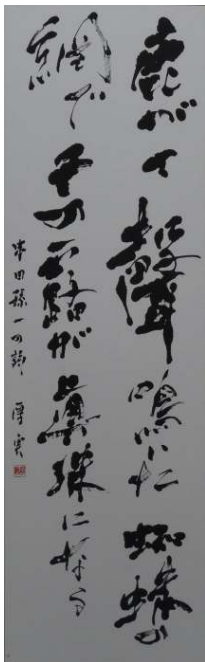 鹿が 聲鳴いた 蜘蛛の
網で 千の露が眞珠になる
串田孫一の詩